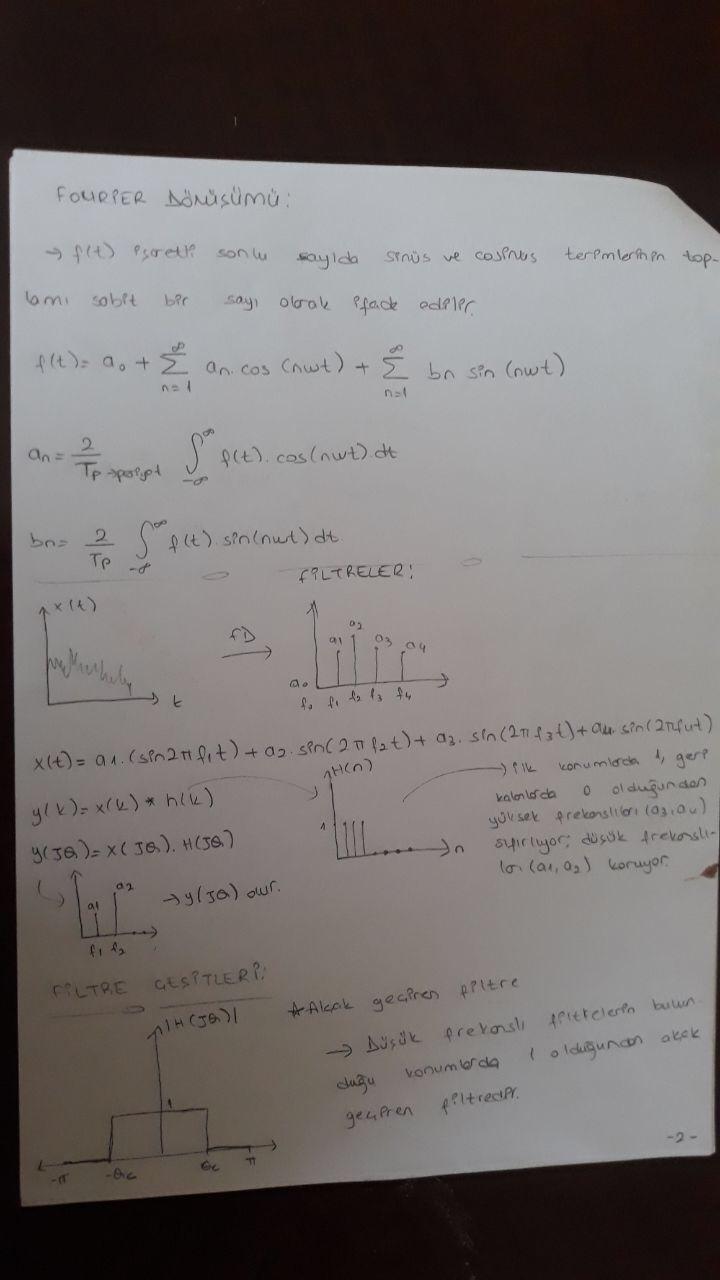 FOURIER DÖNÜŞÜMÜ:
→ f(t) işareti sonlu sayıda sinüs ve cosinüs terimlerinin top-
lamı sabit bir sayı olarak ifade edilir.
f(t) = a₀ + ∞ Σ n=1 an. cos (nwt) + ∞ Σ n=1 bn sin (nwt)
an = 2/Tp→periyot ∫ -∞ ∞ f(t). cos(nwt).dt
bn = 2/Tp ∫ -∞ ∞ f(t). sin(nwt) dt.
FİLTRELER:
x(t) t
FD →
a₀ a1 a2 a3 a4
f₀ f1 f2 f3 f4
x(t) = a1. (sin2πf1t) + a2. sin(2πf2t) + a3. sin(2πf3t) + a4. sin(2πf4t)
y(k) = x(k) * h(k)
y(JΘ) = x(JΘ). H(JΘ)
H(n) 1 n
→ ilk konumlarda 1, geri
kalanlarda 0 olduğundan
yüksek frekanslıları (a3, a4)
sıfırlıyor; düşük frekanslı-
ları (a1, a2) koruyor.
a1 a2 → y(JΘ) olur.
f1 f2
FİLTRE ÇEŞİTLERİ:
* Alçak geçiren filtre
→ Düşük frekanslı filtrelerin bulun-
duğu konumlarda 1 olduğundan alçak
geçiren filtredir.
|H(JΘ)|
1
-π -Θc Θc π
-2-